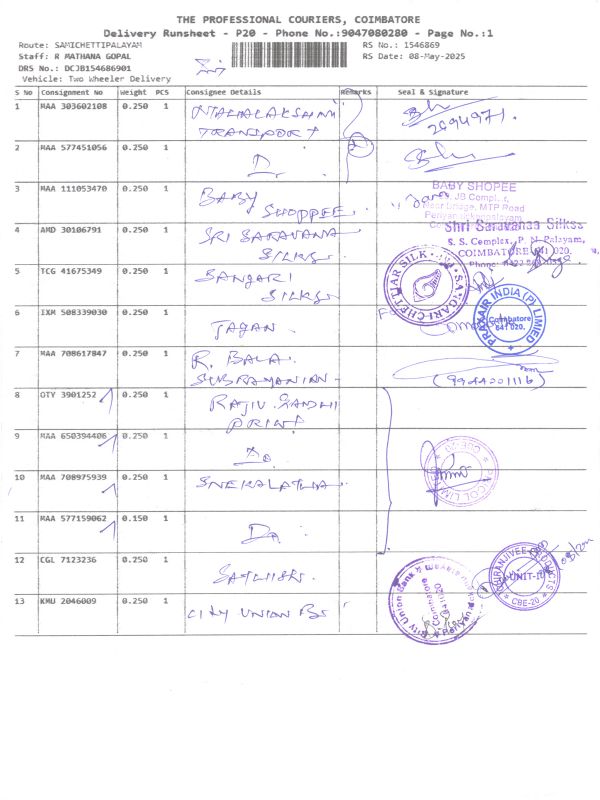 THE PROFESSIONAL COURIERS, COIMBATORE
Delivery Runsheet - P20 - Phone No.:9047080280 - Page No.:1
Route: SAMICHETTIPALAYAM
RS No.: 1546869
Staff: R MATHANA GOPAL
RS Date: 08-May-2025
DRS No.: DCJB154686901
Vehicle: Two Wheeler Delivery
S No Consignment No Weight PCS Consignee Details Remarks Seal & Signature
1 MAA 303602108 0.250 1 MAHALAKSHMI
TRANSPORT
2694971.
2 MAA 577451056 0.250 1 D.
3 MAA 111053470 0.250 1 BABY
SHOPPEE.
BABY SHOPEE
JB Complex,
Near Bridge, MTP Road
4 AMD 30106791 0.250 1 SRI SARAVANA
SILKS.
Shri Saravanaa Silkss
S. S. Complex, P. N. Palayam,
COIMBATORE - 641 020.
5 TCG 41675349 0.250 1 SANGARI
SILKS
SANGARI CHETTIAR SILK
6 IXM 508339030 0.250 1 JAGAN.
PRAXAIR INDIA (P) LIMIED
Coimbatore
641 020.
7 MAA 708617847 0.250 1 R. BALA.
SUBRAMANIAN
(9944201116)
8 OTY 3901252 0.250 1 RAJIV GANDHI
PRINT
9 MAA 650394406 0.250 1 Do.
10 MAA 708975939 0.250 1 SNEKALATHA.
11 MAA 577159062 0.150 1 Do.
12 CGL 7123236 0.250 1
CHIRANJIVEE PRODUCTS
UNIT-II
CBE-20
13 KMU 2046009 0.250 1 CITY UNION BS
City Union Bank
Coimbatore
641020